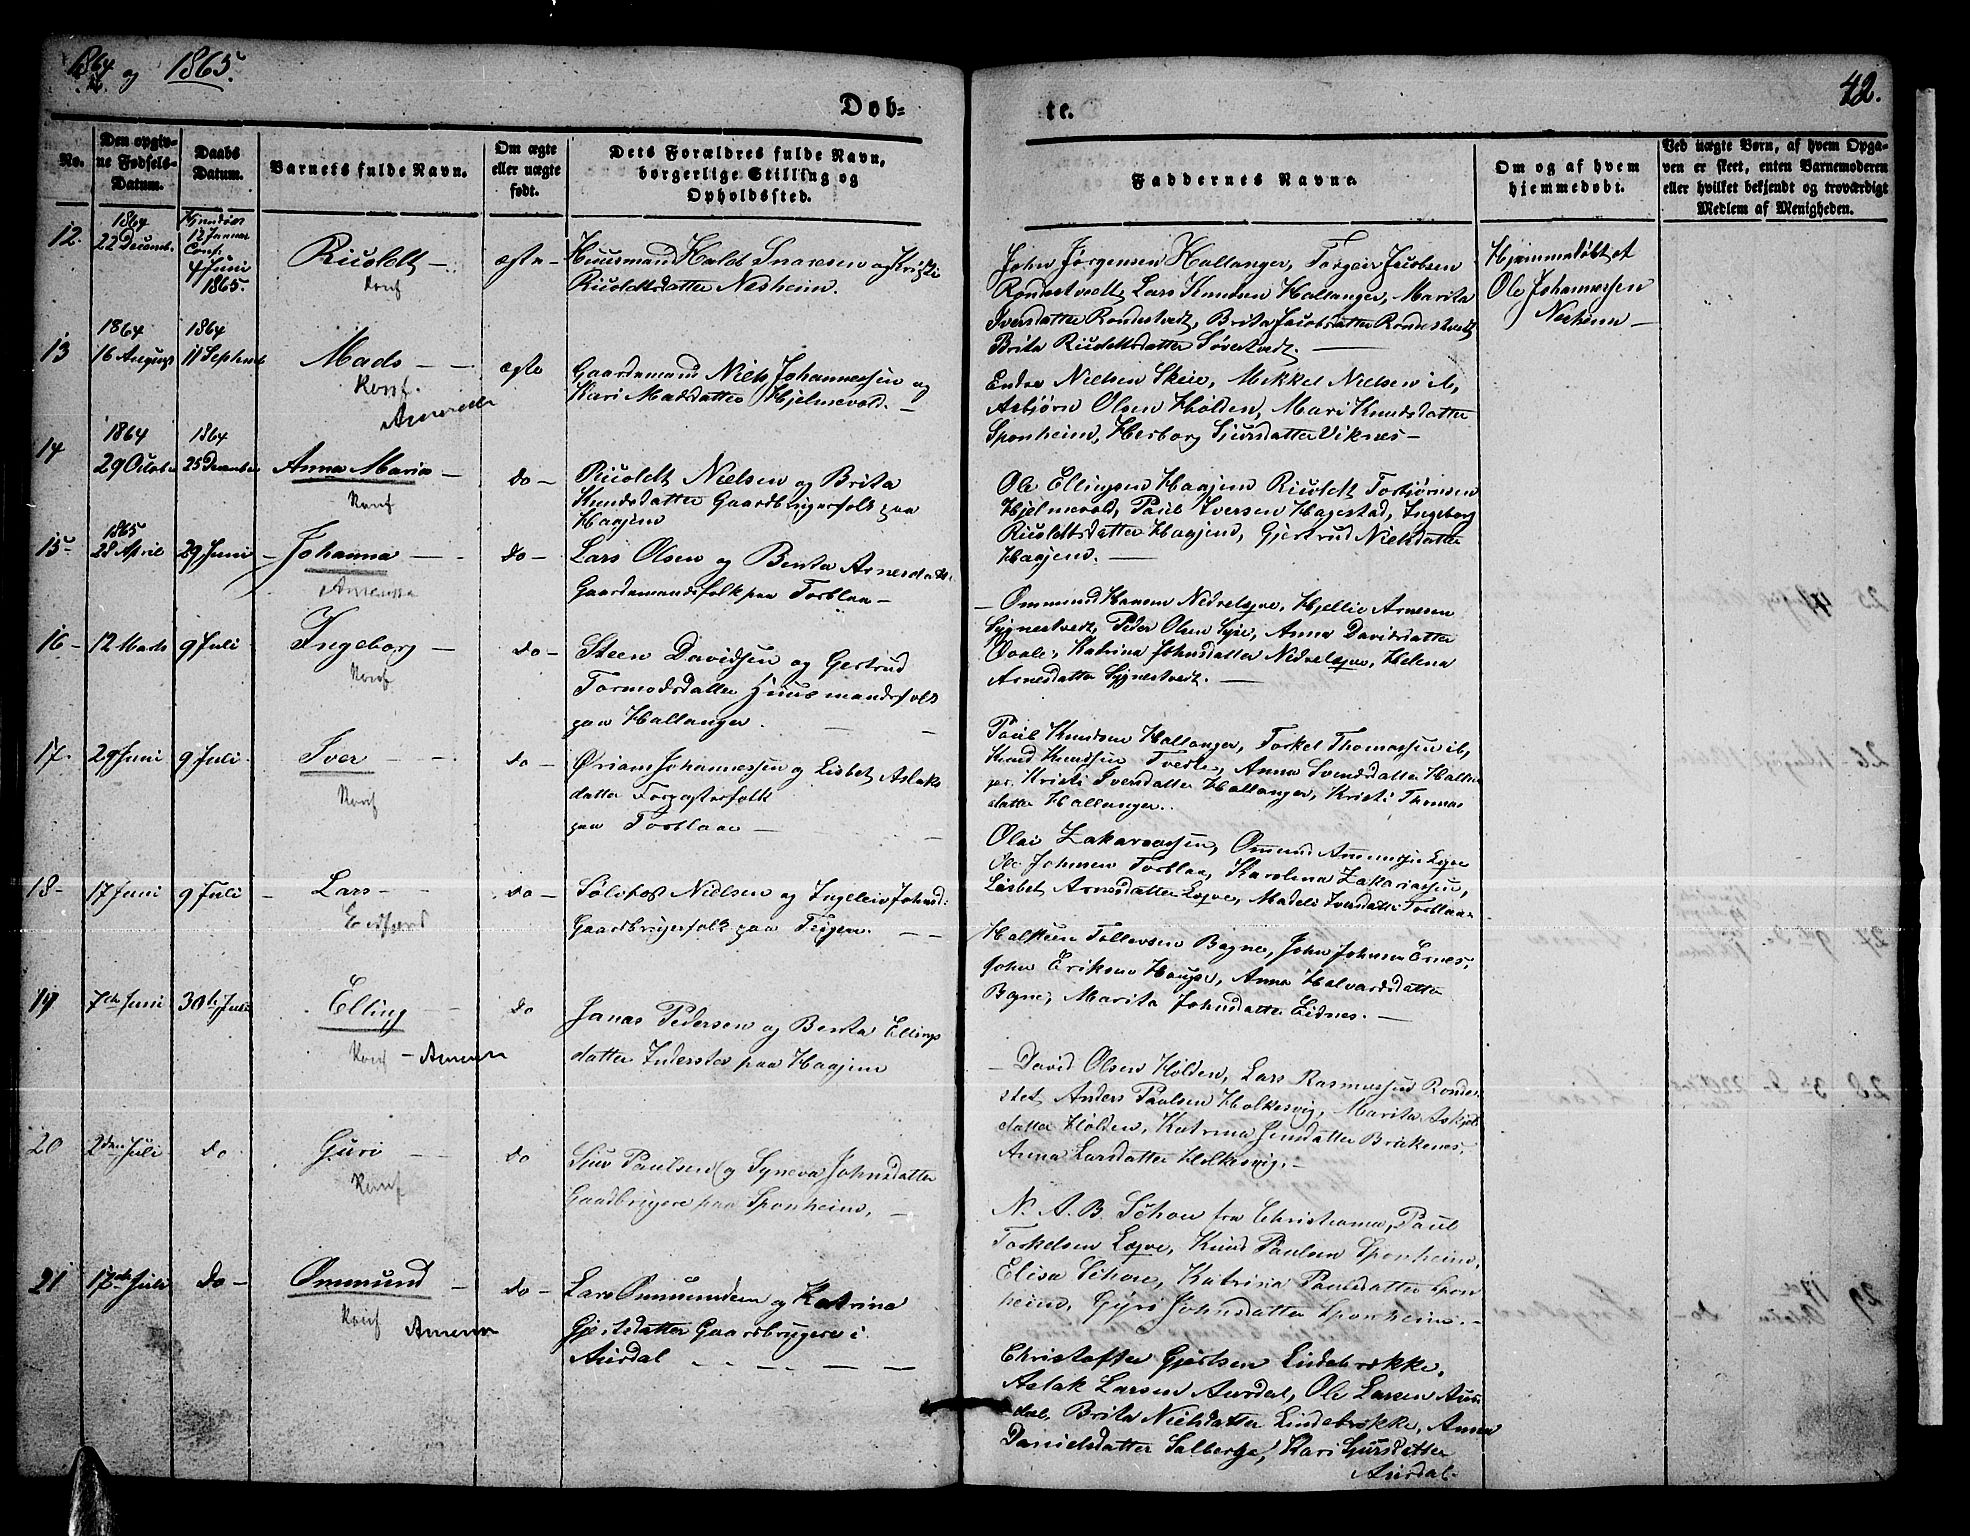 1864 og 1865.
42.
Døb=
te.
No.
Den opgiv-
ne Fødsels-
Datum.
Daabs
Datum.
Barnets fulde Navn.
Om ægte
eller uægte
født.
Dets Forældres fulde Navn,
borgerlige Stilling og
Opholdssted.
Faddernes Navne.
Om og af hvem
hjemmedøbt.
Ved uægte Børn, af hvem Opga-
ven er skeet, enten Barnemoderen
eller hvilket bekjendt og troværdigt
Medlem af Menigheden.
12.
1864
22 Decemb.
12 Januar
Conf.
4 Juni
1865.
Ricoldt -
Konf
ægte
Huusmand Hald Snaresen og Kristi
Ricoldtsdatter Nesheim.
John Jørgensen Hallanger, Torgeir Jacobsen
Rondestvedt, Lars Knudsen Hallanger, Marita
Iversdatter Rondestvedt, Brita Jacobsdatter Rondestvedt
Brita Ricoldtsdatter Søvestvedt. -
Hjemmedøbt af
Ole Johannessen
Nesheim -
13
1864
16 August
1864
11 Septemb
Mads - -
Konf.
Amerika
ægte
Gaardmand Niels Johannessen og
Kari Madsdatter Hjelmevold. -
Endre Nielsen Skeie, Mikkel Nielsen ib,
Asbjørn Olsen Holden, Mari Knudsdatter
Sponheim, Herborg Sjursdatter Viknes -
14
1864
29 Octobe
1864
25 Decembe
Anna Maria -
Konf
do -
Ricoldt Nielsen og Brita
Knudsdatter Gaardbrugerfolk paa
Haajem
Ole Ellingsen Haajem Ricoldt Torbjørnsen
Hjelmevold, Paul Iversen Hagestad, Ingeborg
Ricoldtsdatter Haajem, Gjertrud Nielsdatter
Haajem. -
15-
1865
28 April
29 Juni
- Johanna - -
Amerika
do -
Lars Olsen og Benta Arnesdatt.
Gaardmandsfolk paa Torblaa -
- Ommund Hansen Nedrelejre, Hjellie Arnesen
Syjnestvedt, Peder Olsen Syse, Anna Davidsdatter
Qvale, Katrina Johnsdatter Nedrelejre, Helena
Arnesdatter Syjnestvedt. -
16-
12 Marts
9 Juli
Ingeborg -
Konf
do -
Steen Davidsen og Gertrud
Tormodsdatter Huusmandsfolk
paa Hallanger. - -
Paul Knudsen Hallanger, Torkel Thomassen ib,
Knud Knudsen Tveite, Anna Svendsdatter Hallan
ger. Kristi Iversdatter Hallanger, Kristi Thomas
datter Hallanger.
17.
29 Juni
9 Juli
Iver - -
Konf
do -
Ørian Johannessen og Lisbet Aslaks
datter Forpagterfolk
paa Torblaa -
Olai Zakariassen, Ommund Amundsen Lejre
Ole Johnsen Torblaa, Karolina Zakariassen,
Lisbet Arnesdatter Lejre, Madeli Iversdatter Torblaa
18-
17 Juni
9 Juli
- Lars - -
Eidfjord
do -
Salifos Nielsen og Ingeleiv Johnsd:
Gaardbrugerfolk paa Teigen. - -
Halsteen Tollevsen Bagne, John Johnsen Ernes,
John Eriksen Hauge, Anna Halvardsdatter
Bagne, Marita Johnsdatter Eidnes. -
19
7de Juni
30te Juli
Elling - -
Konf - Amerika
do
Jonas Pedersen og Benta Ellings
datter Inderster paa Haajem
- David Olsen Holden, Lars Rasmussen Ronde-
stet, Anders Paulsen Holkesvig, Marita Askjels
datter Holden, Katrina Jensdatter Brakenes,
Anna Larsdatter Holkesvig. -
20
2den Juli
do
Guri - -
Konf
do
Sjur Paulsen og Syneva Johnsdatter
Gaardbrugere paa Sponheim, -
N. A. B. Schou fra Christiania, Paul
Torkelsen Lejre, Knud Paulsen Sponheim,
Elisa Schou, Katrina Paulsdatter Spon
heim, Gyri Johnsdatter Sponheim. -
21
17de Juli
do -
Ommund -
Konf Amerika
do -
Lars Ommundsen og Katrina
Gjertsdatter Gaardbrugere i
Aurdal - - - - -
Christoffer Gjertsen Lindebrekke,
Aslak Larsen Aurdal, Ole Larsen Aur
dal, Brita Nielsdatter Lindebrekke, Anna
Danielsdatter Salberge, Kari Sjursdatter
Aurdal-